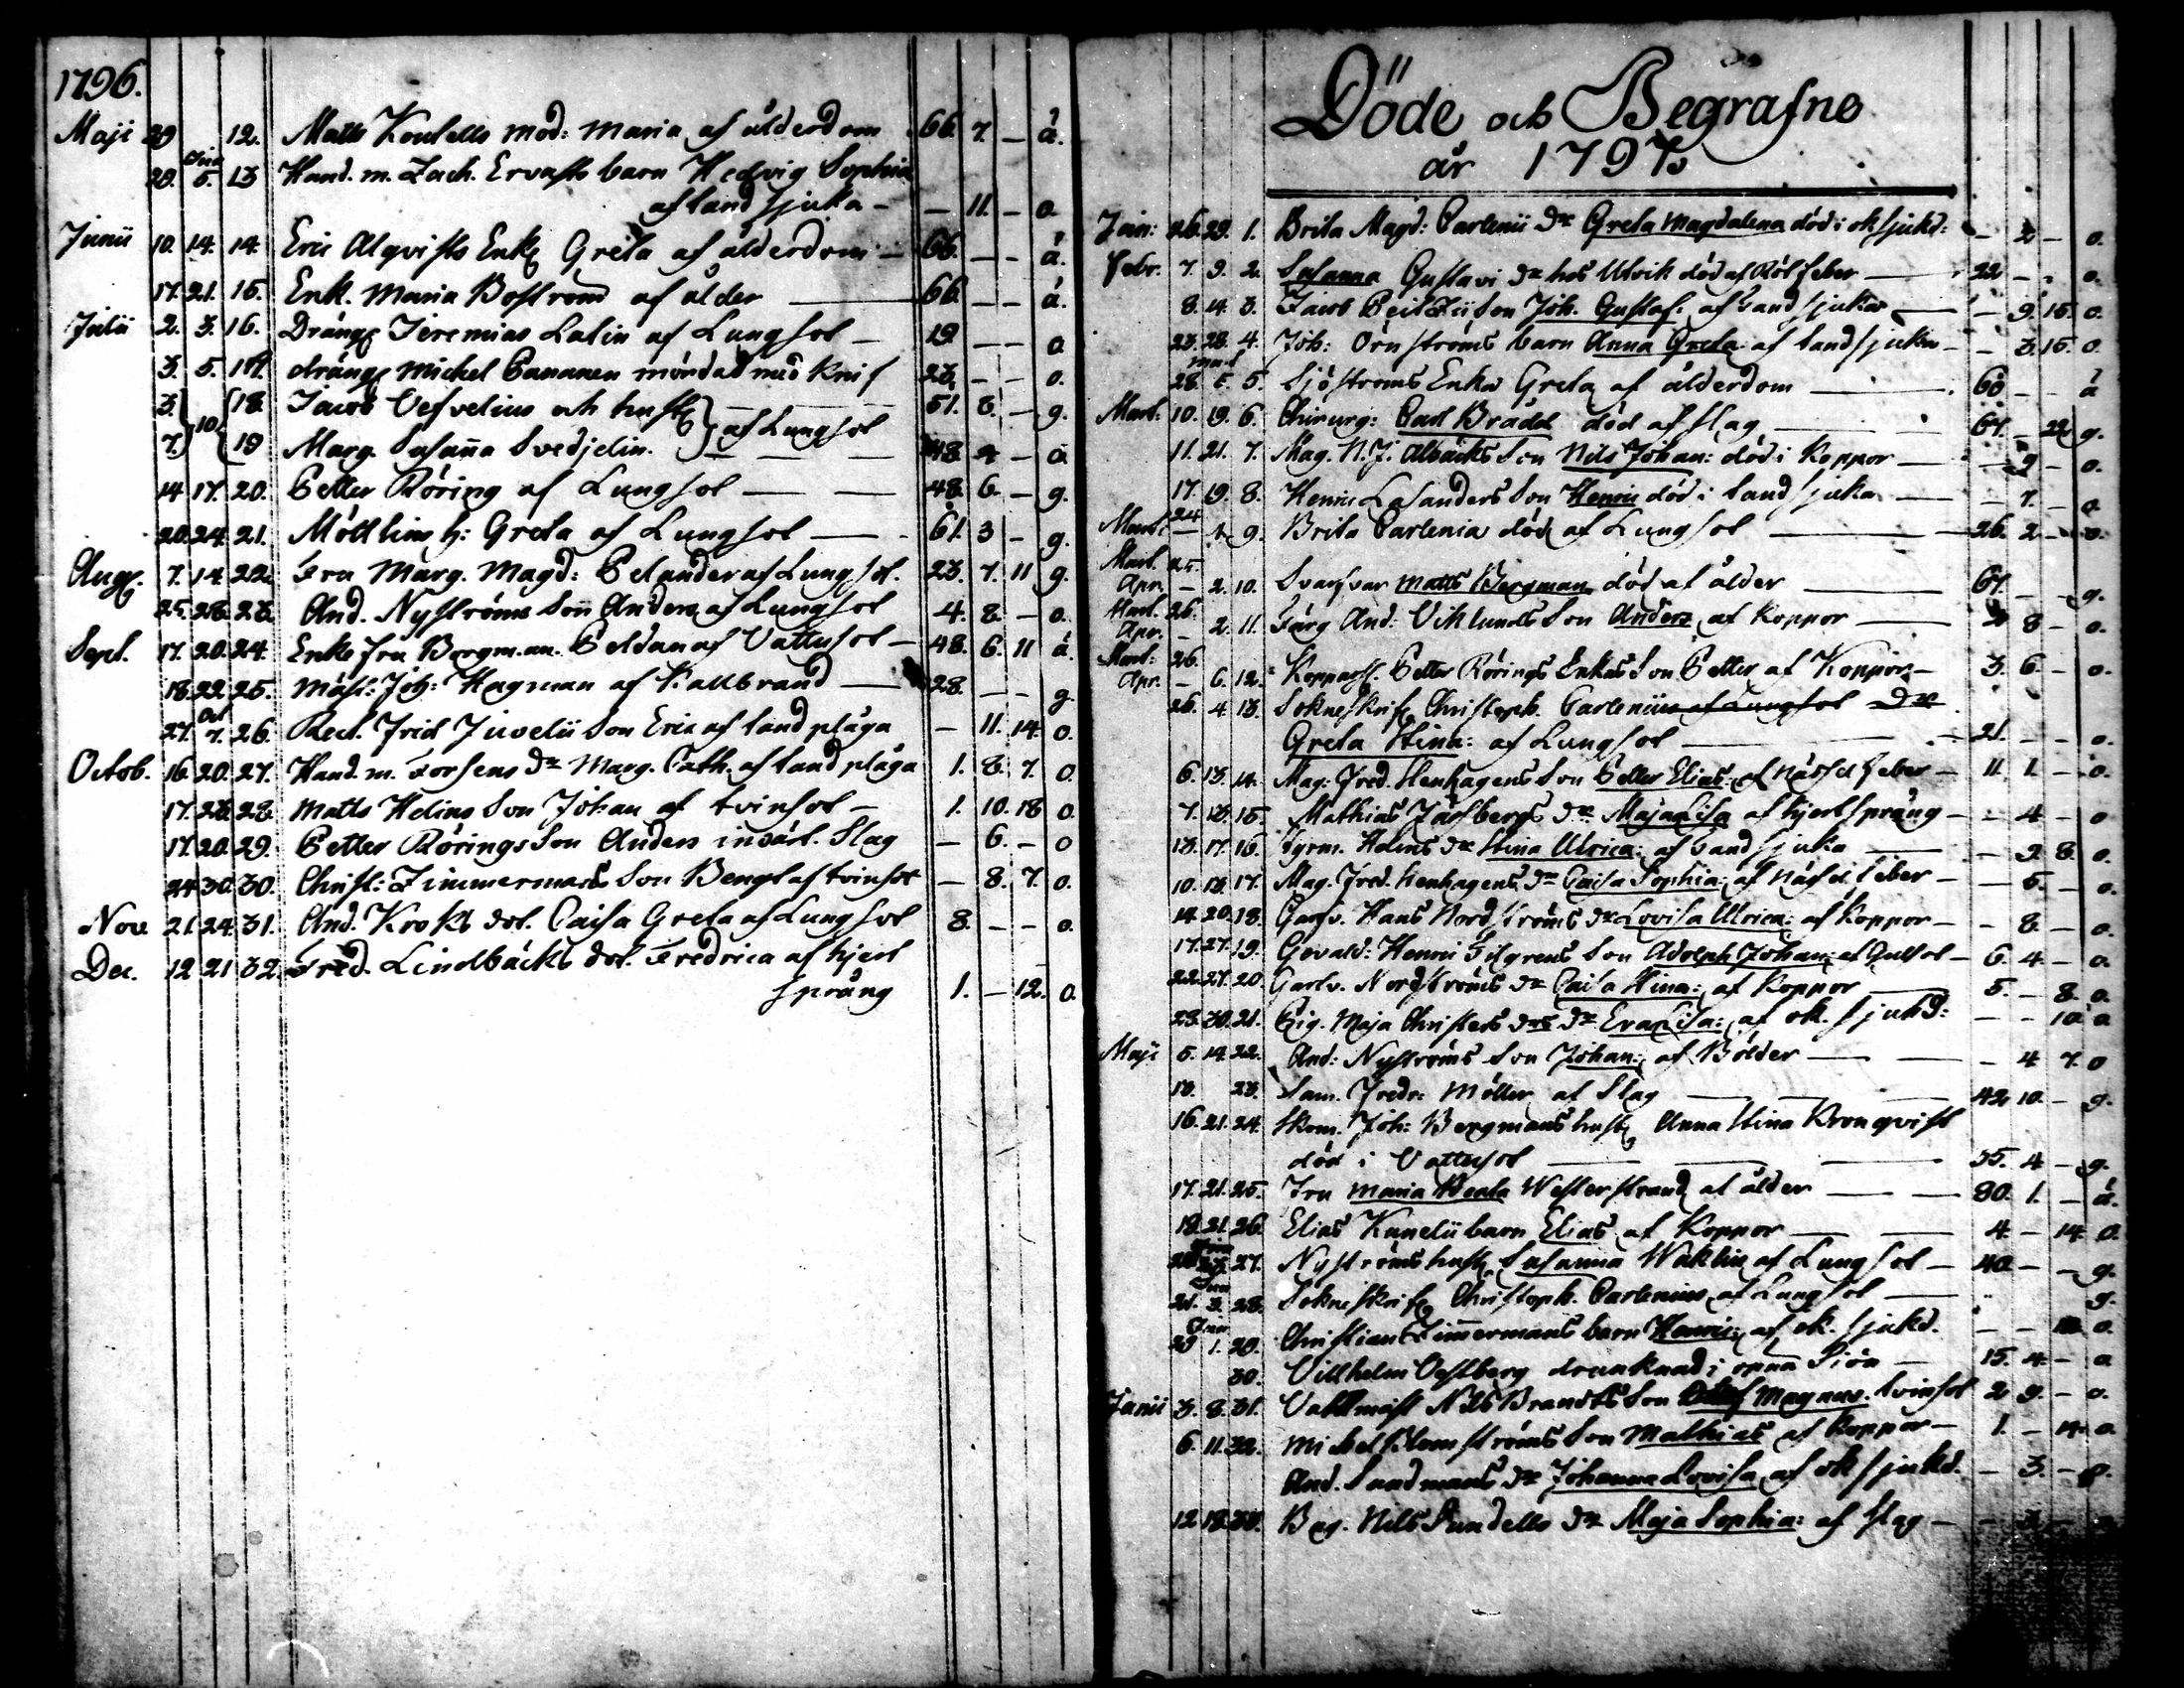 1796.
Maji 29 12. Matts Kontells mod: Maria af ålderdom 66. 7. — å.
29. Jun 5. 13 Hand. m. Zach. Ervasts barn Hedvig Sophia
af tand sjuka — — 11. — o.
Junii 10. 14. 14. Eric Alqvists Enk Greta af ålderdom — 66. — — å.
17. 21. 15. Enk. Maria Boström af ålder 66 — — å.
Julii 2. 3. 16. Dräng Jeremias Lalin af Lungsot — 19 — — o.
3. 5. 17. dräng Michel Pananen mördad med knif 23. — — o.
3. 10 18. Jacob Vesvelius och hust 51. 8. — g.
7. 19 Marg. Susaña Svedjelin. af Lungsot 48. 4 — å
14 17. 20. Petter Röring af Lungsot — — 48. 6. — g.
20. 24. 21. Möttlins h: Greta af Lungsot — 61. 3 — g.
Aug. 7. 14. 22. Fru Marg. Magd: Pelander af Lungsot. 23. 7. 11 g.
25. 28. 23. And. Nyströms Son Anders af Lungsot 4. 8. — o.
Sept. 17. 20. 24. Enke fru Borgm.an. Peldan af Vattusot — 48. 6. 11 å
18. 22. 25. Mäst: Joh: Hagman af Kallbrand — 28. — — g
27. Oct 7. 26. Red. Frid Juvelii Son Eric af land plåga — 11. 14. o.
Octob. 16. 20. 27. Hand. m. Forsens dr Marg. Cath. af land plåga 1. 8. 7. o.
17. 23. 28. Matts Helins Son Johan af tvinsot — 1. 10. 18 o.
17. 20. 29. Petter Rörings Son Anders invärt. Slag — 6. — o
24 30. 30. Christ: Zimmermans Son Bengt af tvinsot — 8. 7. o.
Nov. 21. 24. 31. And. Kroks dot. Caisa Greta af Lungsot 8. — — o.
Dec. 12 21 32. Fred. Lindbäcks dot. Fredrica af hjert
språng 1. — 12. o.
Döde och Begrafne
år 1797.
Jan: 26. 29. 1. Brita Magd: Carlenii dr Greta Magdalena död i ok sjukd: — 2 — o.
Febr. 7. 9. 2. Susanna Gustavi dr hos Ulvik död af Röt feber — 22 — — o.
8. 14. 3. Jacob Son Joh. Gustaf: af tand sjukan — — 9. 15. o.
23. 28. 4. Joh: Örnströms barn Anna Greta: af tand sjukan — — 3. 15. o.
28. Mart 5. 5. Sjöströms Enka Greta af ålderdom — 60 — — å
Mart. 10. 19. 6. Chirurg: Carl Brådd död af Slag — 67. — 22 g.
11. 21. 7. Mag. N. J. Albäcks Son Nils Johan: död i Koppor — — 9 — o.
17. 19. 8. Henric Lasanders Son Henric död i tand sjuka — — 7. — o.
Mart: 24 — 9. Brita Carlenia död af Lungsot — 26. 2 — o.
Mart. 25. Apr. — 2. 10. Svarfvar Matts Bergman död af ålder — 67. — — g.
Mart. 26. Apr. — 2. 11. Färg And: Viklunds Son Anders af Koppor — 8 — o.
Mart: 26. Apr. — 6. 12. Kopparsl. Petter Rörings Enkas Son Petter af Koppor — 3. 6 — o.
26. 4. 13. Sokneskrif Christoph. Carlenius af Lungsot dr
Greta Stina: af Lungsot — 21. — — o.
6. 13. 14. Mag. Fred. Henhagens Son Petter Elias: af Näsfel feber — 11. 1. — o.
7. 13. 15. Mathias Jässbergs dr Maja Lisa af hjert språng — — 4 — o
13. 17. 16. Styrm. Holms dr Stina Ulrica: af tand sjuka — — 9. 8. o.
10. 13. 17. Mag. Fred. Henhagens dr Caisa Sophia: af Näsfel. feber — — 5. — o.
14. 20. 18. Garfv. Hans Nordströms dr Lovisa Ulrica: af Koppor — — 8. — o.
17. 27. 19. Gevald: Henric Gilgrens Son Adolph Johan: af Gulsot — 6. 4 — o.
22. 27. 20. Garfv. Nordströms dr Caisa Stina: af Koppor — 5. — 8. o.
23. 30. 21. Pig. Maja Christers drs dr Eva Lisa: af ok. sjukd: — — 10. o
Maji 5. 14. 22. And: Nyströms Son Johan: af Bölder — — 4 7. o
13. 23. Sam. Fredr: Möller af Slag — 42 10. — g.
16. 21. 24. Skom. Joh: Bergmans hust Anna Stina Kronqvist
död i Vattusot — 35. 4 — g.
17. 21. 25. Fru Maria Beata Westerstrand af ålder — 80. 1. — å.
18. 21. 26. Elias Kanelii barn Elias af Koppor — 4. — 14. o.
27. Nyströms hust Susanna Waklin af Lungsot — 40. — — g.
21. Jun 3. 28. Sokneskrif Christoph. Carlenius af Lungsot — g.
29 Jun 1. 29. Christian Zimmermans barn Henric: af ok. sjukd. — — o.
30. Villhelm Östberg drunknad i Siön — 15. 4. — o
Junii 3. 8. 31. Vaktmäst Nils Brandts Son Magnus. tvinsot 2 9. — o.
6. 11. 32. Michel Blomströms Son Mathias af Koppor — 1. — 14. o.
And. Sandmans dr Johanna Lovisa af ok sjukd. — 3. — o.
12. 18. 33. Bag. Nils Sundells dr Maja Sophia: af Slag — — 3. —